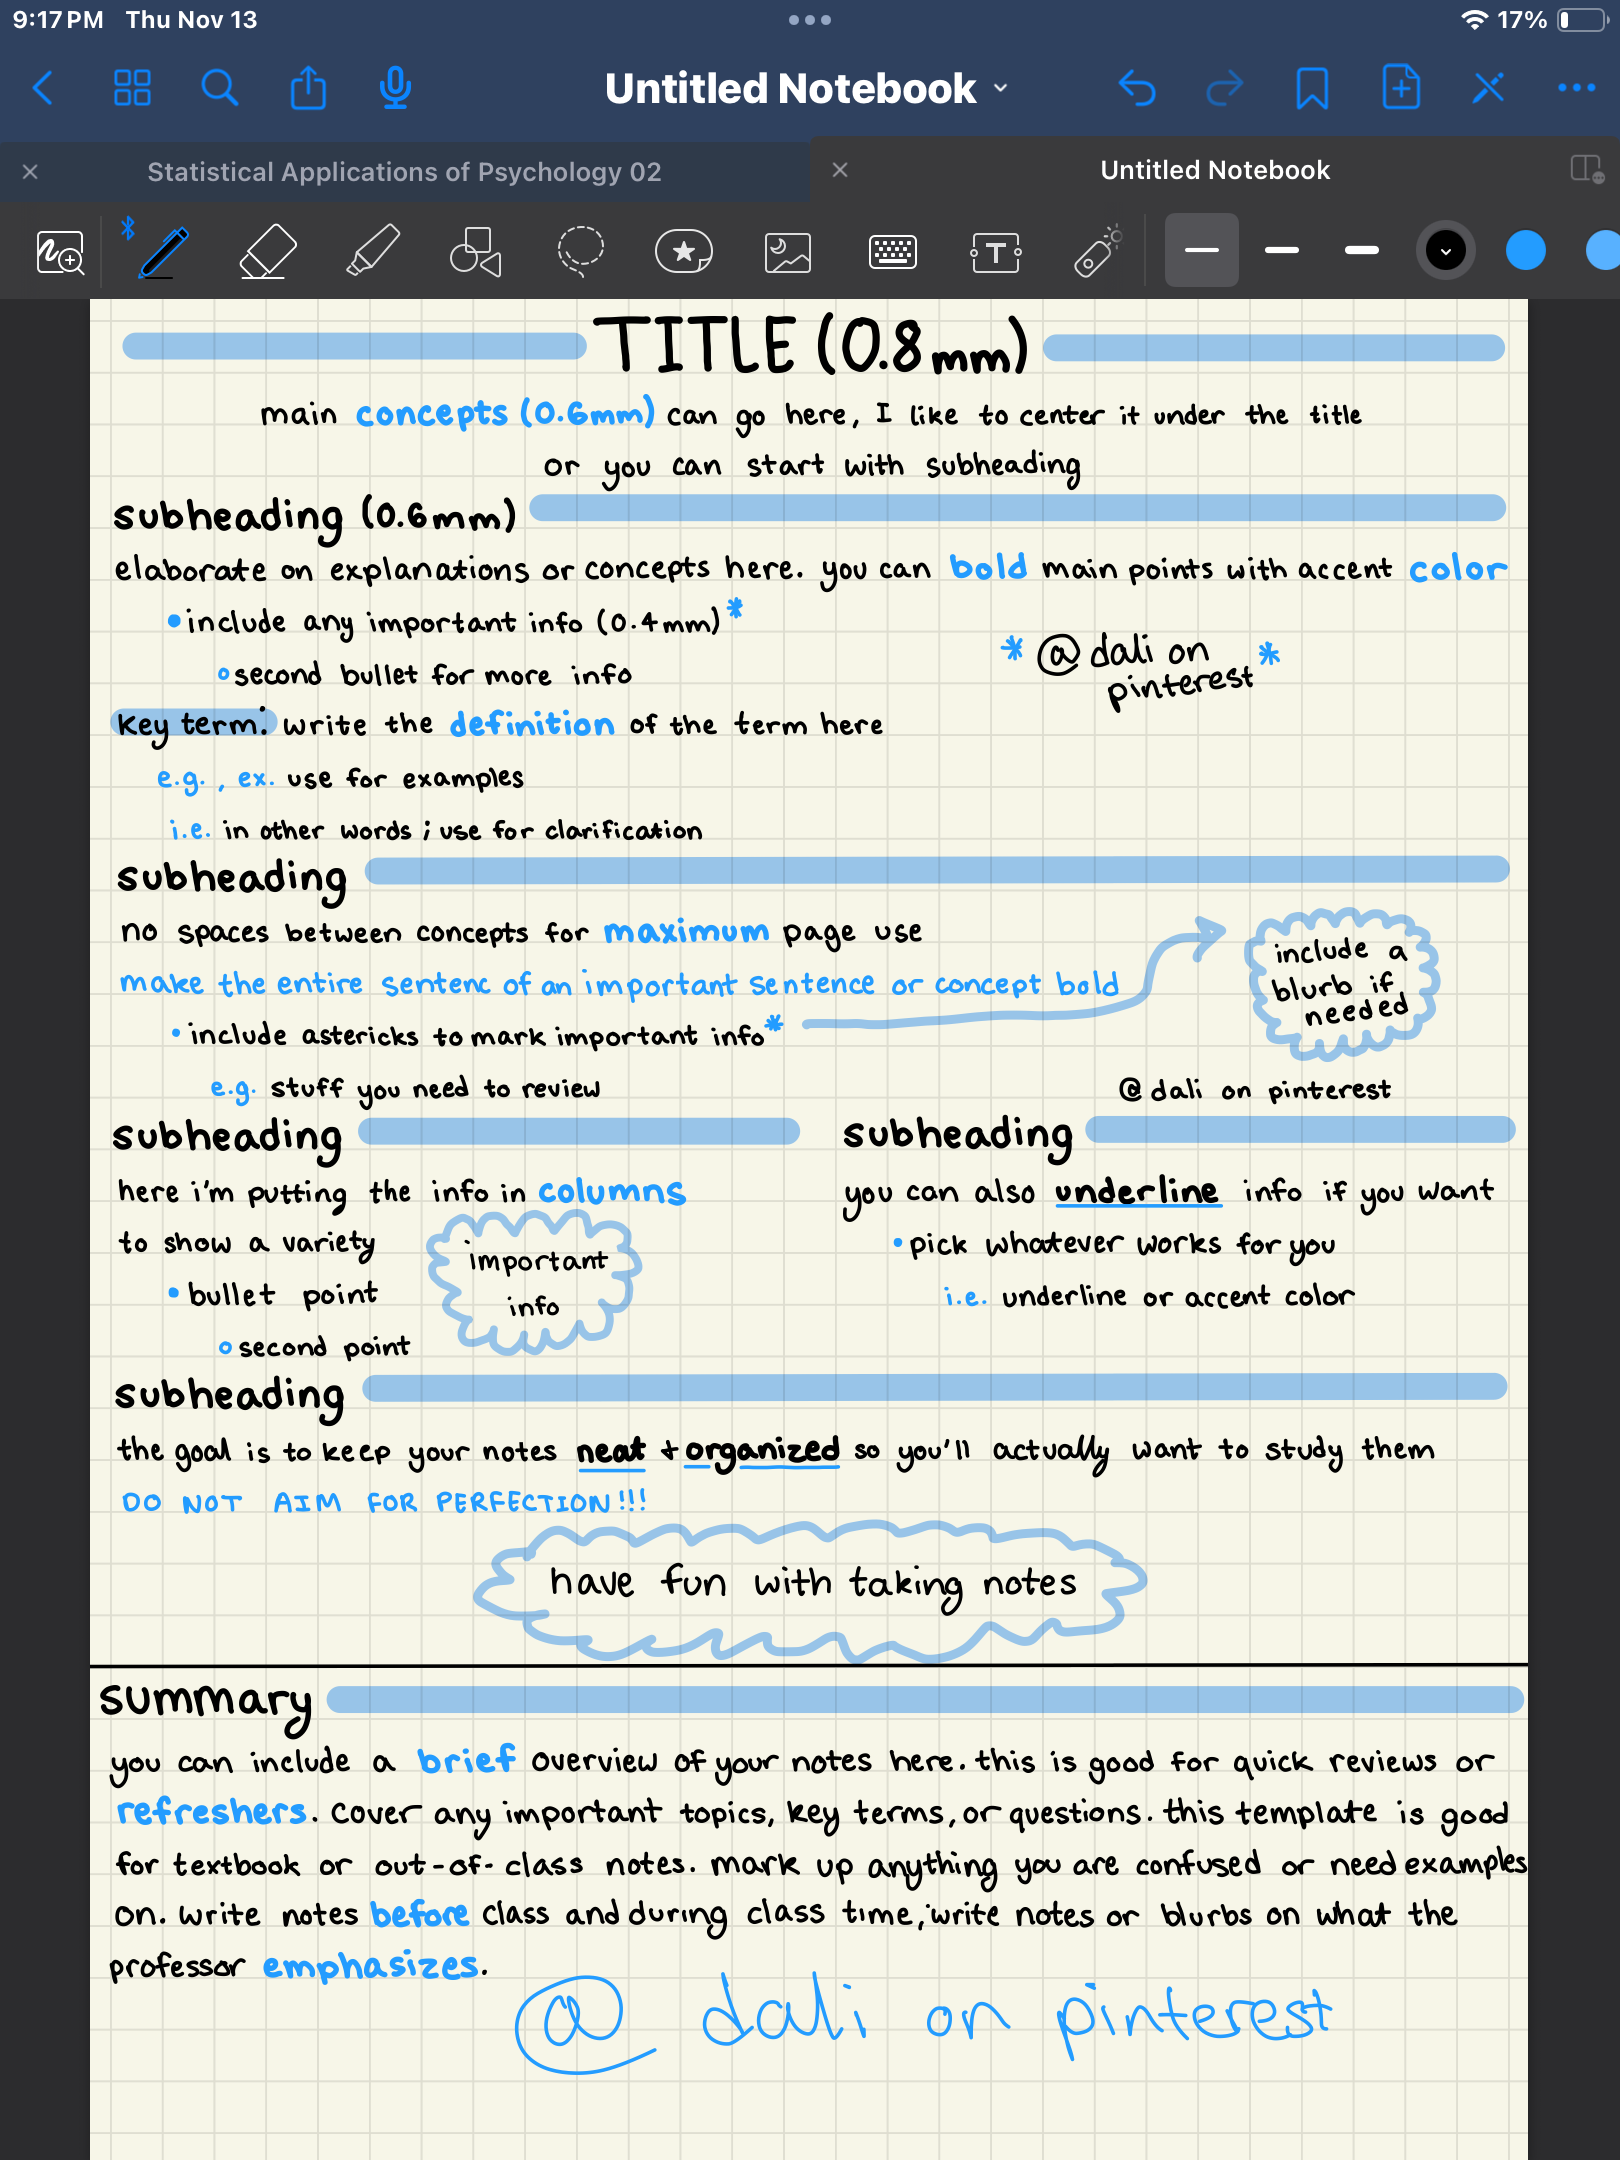 9:17 PM Thu Nov 13
17%
Untitled Notebook
Statistical Applications of Psychology 02
Untitled Notebook
TITLE (0.8mm)
main concepts (0.6mm) can go here, I like to center it under the title
or you can start with subheading
subheading (0.6mm)
elaborate on explanations or concepts here. you can bold main points with accent color
• include any important info (0.4mm)*
◦ second bullet for more info
* @dali on *
pinterest
key term: write the definition of the term here
e.g., ex. use for examples
i.e. in other words ; use for clarification
subheading
no spaces between concepts for maximum page use
make the entire sentenc of an important sentence or concept bold
• include astericks to mark important info*
e.g. stuff you need to review
include a
blurb if
needed
@dali on pinterest
subheading
here i'm putting the info in columns
to show a variety
• bullet point
◦ second point
important
info
subheading
you can also underline info if you want
• pick whatever works for you
i.e. underline or accent color
subheading
the goal is to keep your notes neat + organized so you'll actually want to study them
DO NOT AIM FOR PERFECTION!!!
have fun with taking notes
summary
you can include a brief overview of your notes here. this is good for quick reviews or
refreshers. cover any important topics, key terms, or questions. this template is good
for textbook or out-of-class notes. mark up anything you are confused or need examples
on. write notes before class and during class time, write notes or blurbs on what the
professor emphasizes.
@ dali on pinterest